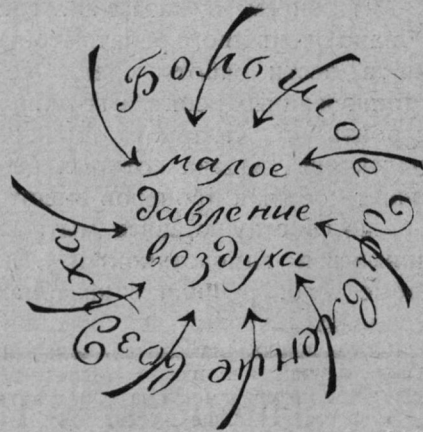 Большое давление воздуха
малое
давление
воздуха